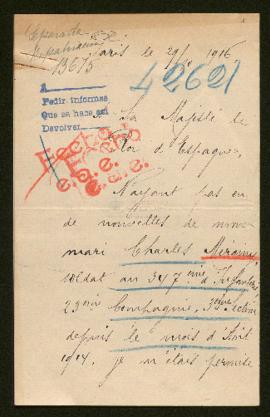 13675
Paris le 29/ 1916
42621
A
Pedir informes
Que se hace así
Devolver
A Sa Majesté le
Roi d'Espagne,
N'ayant pas eu
de nouvelles de mon
mari Charles
soldat au 347ème d'Infanterie
23ème Compagnie, Section
depuis le mois d'Août
1914. je m'étais permise